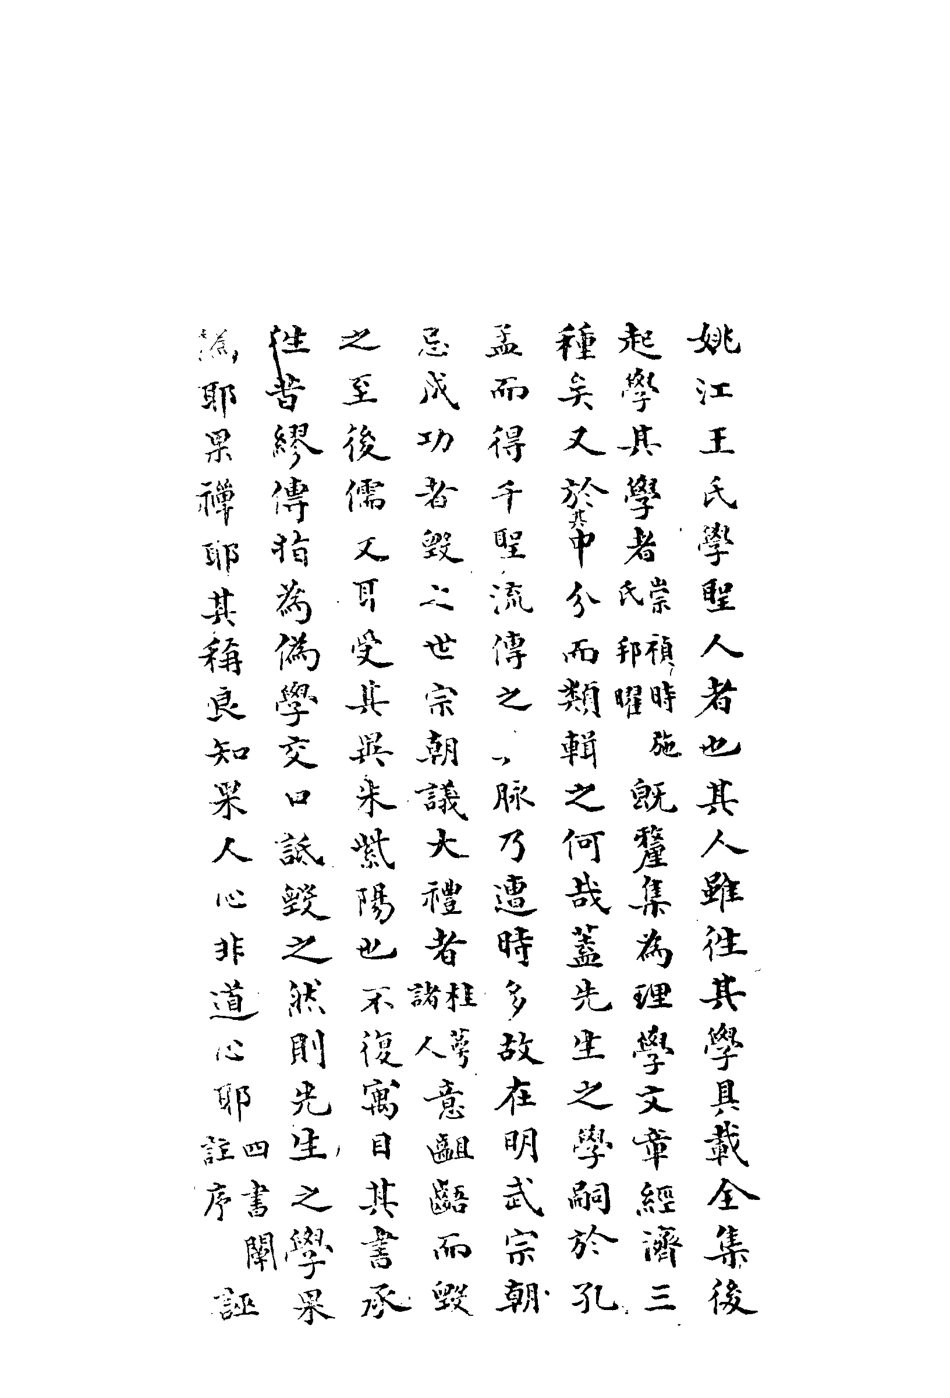 姚江王氏學聖人者也其人雖往其學具載全集後
起學其學者崇禎時施氏邦曜既釐集為理學文章經濟三
種矣又於其中分而類輯之何哉蓋先生之學嗣於孔
孟而得千聖流傳之一脉乃遭時多故在明武宗朝
忌成功者毀之世宗朝議大禮者桂萼諸人意齟齬而毀
之至後儒又耳受其與朱紫陽也不復寓目其書承
往昔繆傳指為偽學交口詆毀之然則先生之學果
偽耶果禪耶其稱良知果人心非道心耶四書闡註序誣